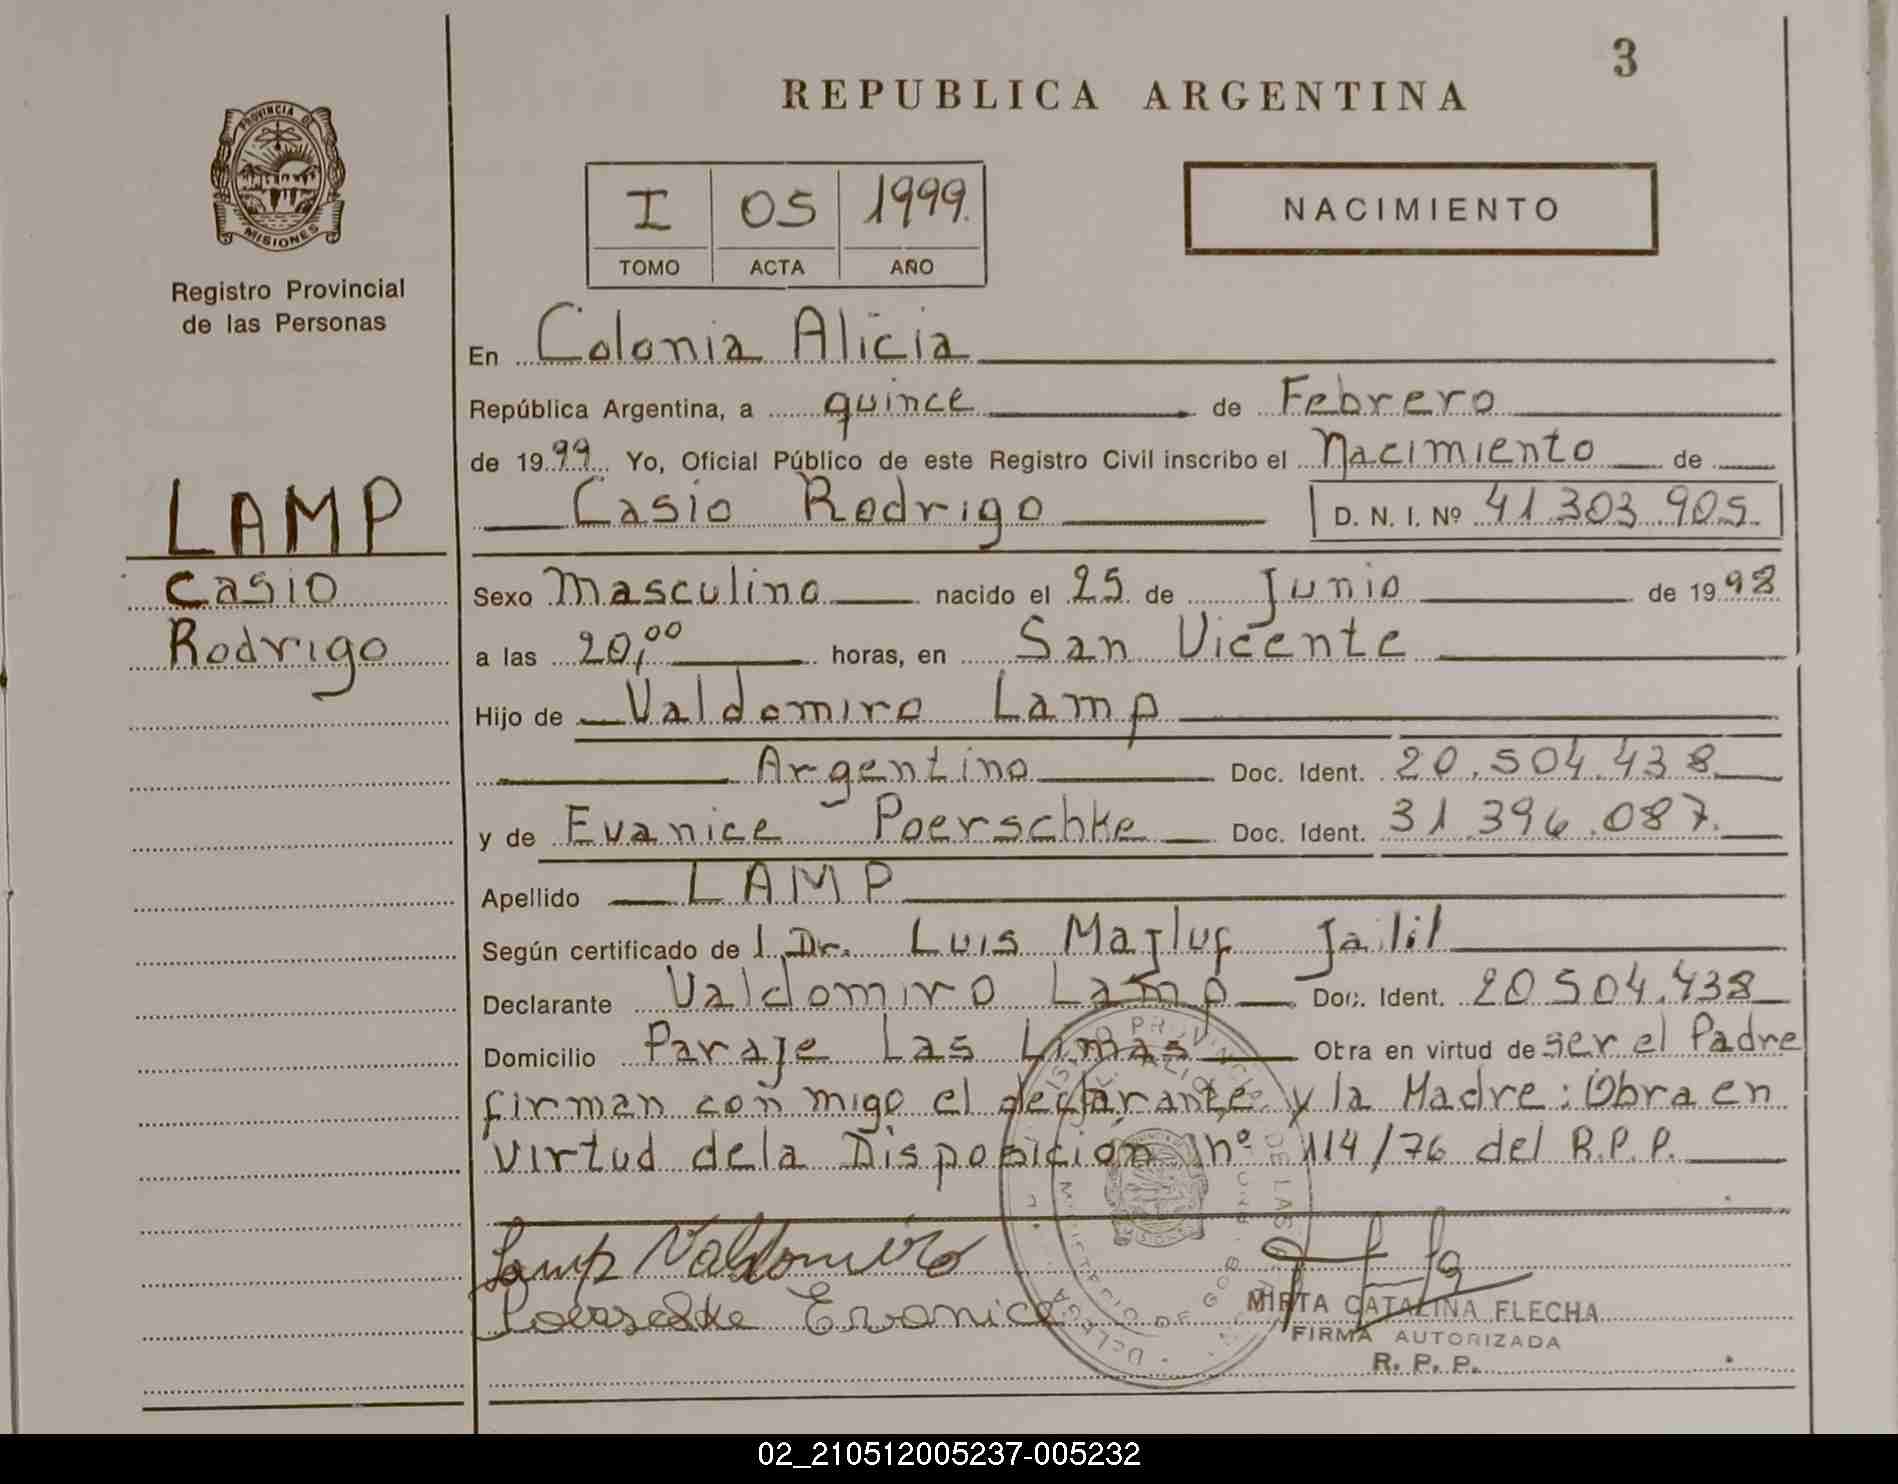 3
REPUBLICA ARGENTINA
PROVINCIA DE
MISIONES
Registro Provincial
de las Personas
I 05 1999.
TOMO ACTA AÑO
NACIMIENTO
En Colonia Alicia
República Argentina, a quince de Febrero
de 1999 Yo, Oficial Público de este Registro Civil inscribo el Nacimiento de
LAMP
Casio
Rodrigo
Casio Rodrigo D. N. I. Nº 41.303.905.
Sexo Masculino nacido el 25 de Junio de 1998
a las 20,00 horas, en San Vicente
Hijo de Valdomiro Lamp
Argentino Doc. Ident. 20.504.438
y de Evanice Poerschke Doc. Ident. 31.396.087.
Apellido LAMP
Según certificado de Dr. Luis Majluf Jalil
Declarante Valdomiro Lamp Doc. Ident. 20504.438
Domicilio Paraje Las Limas Otra en virtud de ser el Padre
firman con migo el declarante y la Madre: Obra en
virtud dela Disposición nº 114/76 del R.P.P.
Lamp Valdomiro
Poerschke Evanice
MIRTA CATALINA FLECHA
FIRMA AUTORIZADA
R. P. P.
02_210512005237-005232